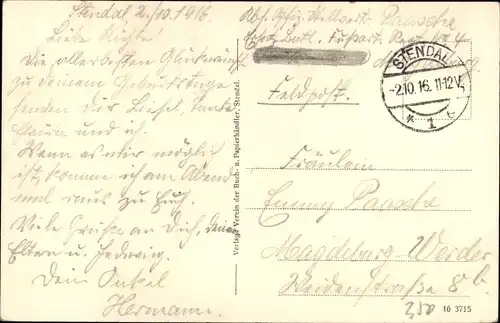 Stendal 2./10. 1916
Liebe Nichte!
Die allerbesten Glückwünsch
zu Deinem Geburtstage
senden Dir Liesel, Tante
und ich.
Wenn es mir möglich
ist, komme ich am Abend
mal raus zu Euch.
Viele Grüße an Dich, deine
Eltern u. Hedwig.
Dein Onkel
Hermann.
Verlag: Verein der Buch- u. Papierhändler, Stendal.
Abs. Offiz. Stellvertr. Paasche
Feldpost.
STENDAL
-2.10.16. 11-12 V.
* 1 t
Fräulein
Emmy Paasche
Magdeburg-Werder
Weidenstraße 8b.
250
16 3715